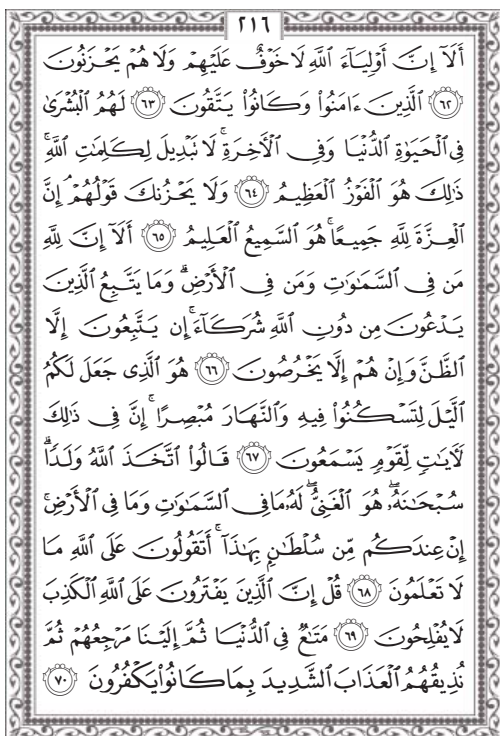 ٢١٦
أَلَآ إِنَّ أَوْلِيَآءَ ٱللَّهِ لَا خَوْفٌ عَلَيْهِمْ وَلَا هُمْ يَحْزَنُونَ
﴿٦٢﴾ ٱلَّذِينَ ءَامَنُواْ وَكَانُواْ يَتَّقُونَ ﴿٦٣﴾ لَهُمُ ٱلْبُشْرَىٰ
فِى ٱلْحَيَوٰةِ ٱلدُّنْيَا وَفِى ٱلْأَخِرَةِ ۚ لَا نَبْدِيلَ لِكَلِمَٰتِ ٱللَّهِ ۚ
ذَٰلِكَ هُوَ ٱلْفَوْزُ ٱلْعَظِيمُ ﴿٦٤﴾ وَلَا يَحْزُنكَ قَوْلُهُمْ ۘ إِنَّ
ٱلْعِزَّةَ لِلَّهِ جَمِيعًا ۚ هُوَ ٱلسَّمِيعُ ٱلْعَلِيمُ ﴿٦٥﴾ أَلَآ إِنَّ لِلَّهِ
مَن فِى ٱلسَّمَٰوَٰتِ وَمَن فِى ٱلْأَرْضِ ۗ وَمَا يَتَّبِعُ ٱلَّذِينَ
يَدْعُونَ مِن دُونِ ٱللَّهِ شُرَكَآءَ ۚ إِن يَتَّبِعُونَ إِلَّا
ٱلظَّنَّ وَإِنْ هُمْ إِلَّا يَخْرُصُونَ ﴿٦٦﴾ هُوَ ٱلَّذِى جَعَلَ لَكُمُ
ٱلَّيْلَ لِتَسْكُنُواْ فِيهِ وَٱلنَّهَارَ مُبْصِرًا ۚ إِنَّ فِى ذَٰلِكَ
لَأَيَٰتٍ لِّقَوْمٍ يَسْمَعُونَ ﴿٦٧﴾ قَالُواْ ٱتَّخَذَ ٱللَّهُ وَلَدًا ۗ
سُبْحَٰنَهُۥ ۖ هُوَ ٱلْغَنِىُّ ۖ لَهُۥ مَا فِى ٱلسَّمَٰوَٰتِ وَمَا فِى ٱلْأَرْضِ ۚ
إِنْ عِندَكُم مِّن سُلْطَٰنٍۭ بِهَٰذَآ ۚ أَتَقُولُونَ عَلَى ٱللَّهِ مَا
لَا تَعْلَمُونَ ﴿٦٨﴾ قُلْ إِنَّ ٱلَّذِينَ يَفْتَرُونَ عَلَى ٱللَّهِ ٱلْكَذِبَ
لَا يُفْلِحُونَ ﴿٦٩﴾ مَتَٰعٌ فِى ٱلدُّنْيَا ثُمَّ إِلَيْنَا مَرْجِعُهُمْ ثُمَّ
نُذِيقُهُمُ ٱلْعَذَابَ ٱلشَّدِيدَ بِمَا كَانُواْ يَكْفُرُونَ ﴿٧٠﴾